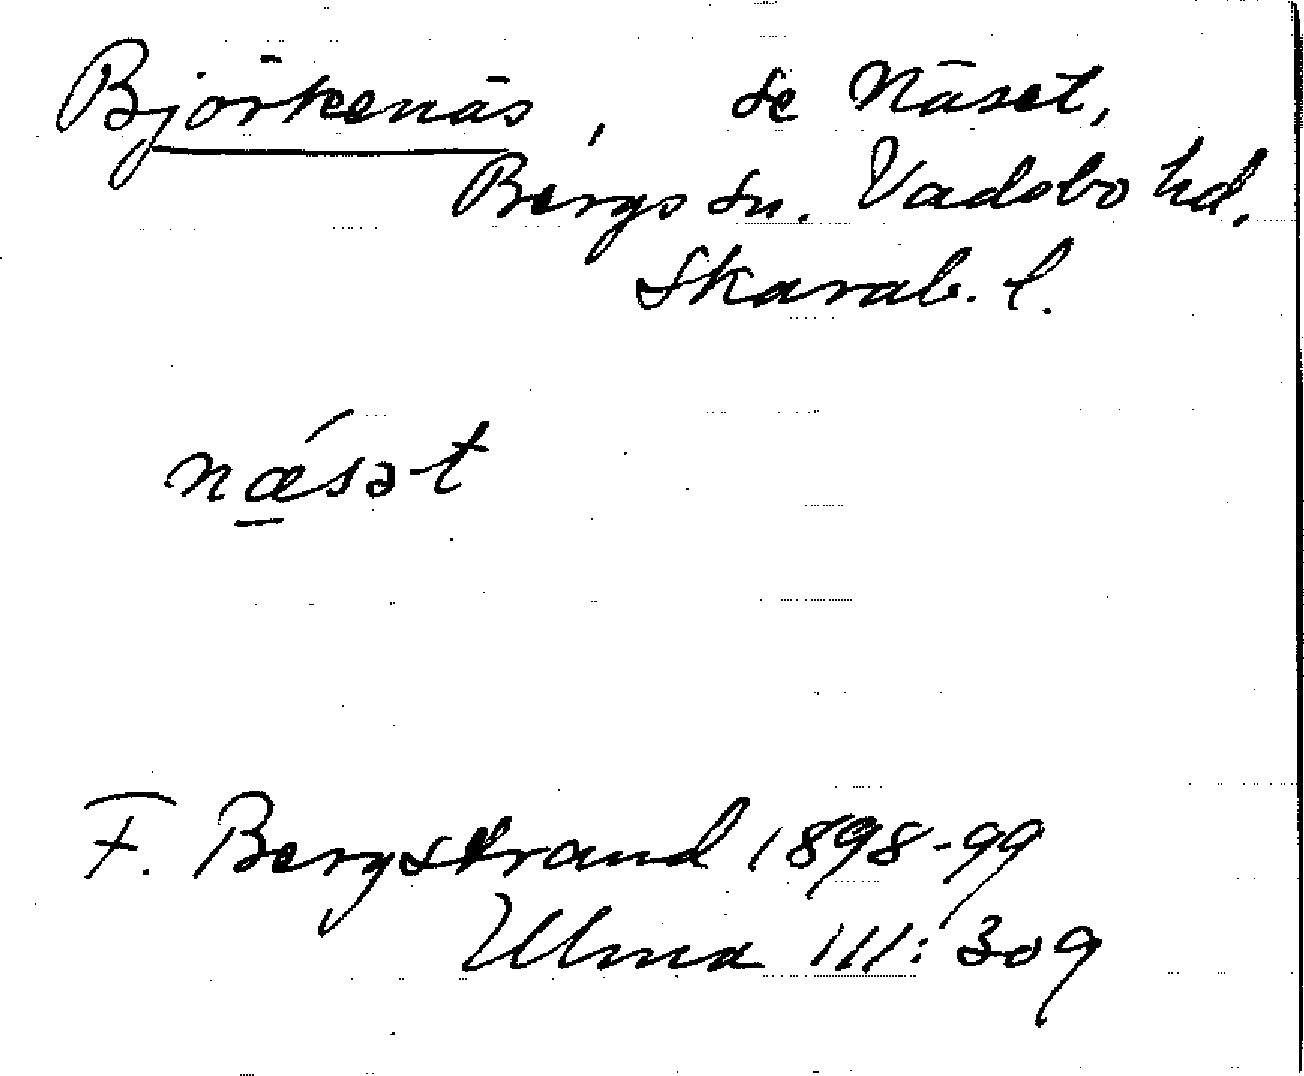 Björkenäs, se Näset,
Bergs sn. Vadsbo hd,
Skarab. l.
nǽ̱sət
F. Bergstrand 1898-99
Ulma 111:309